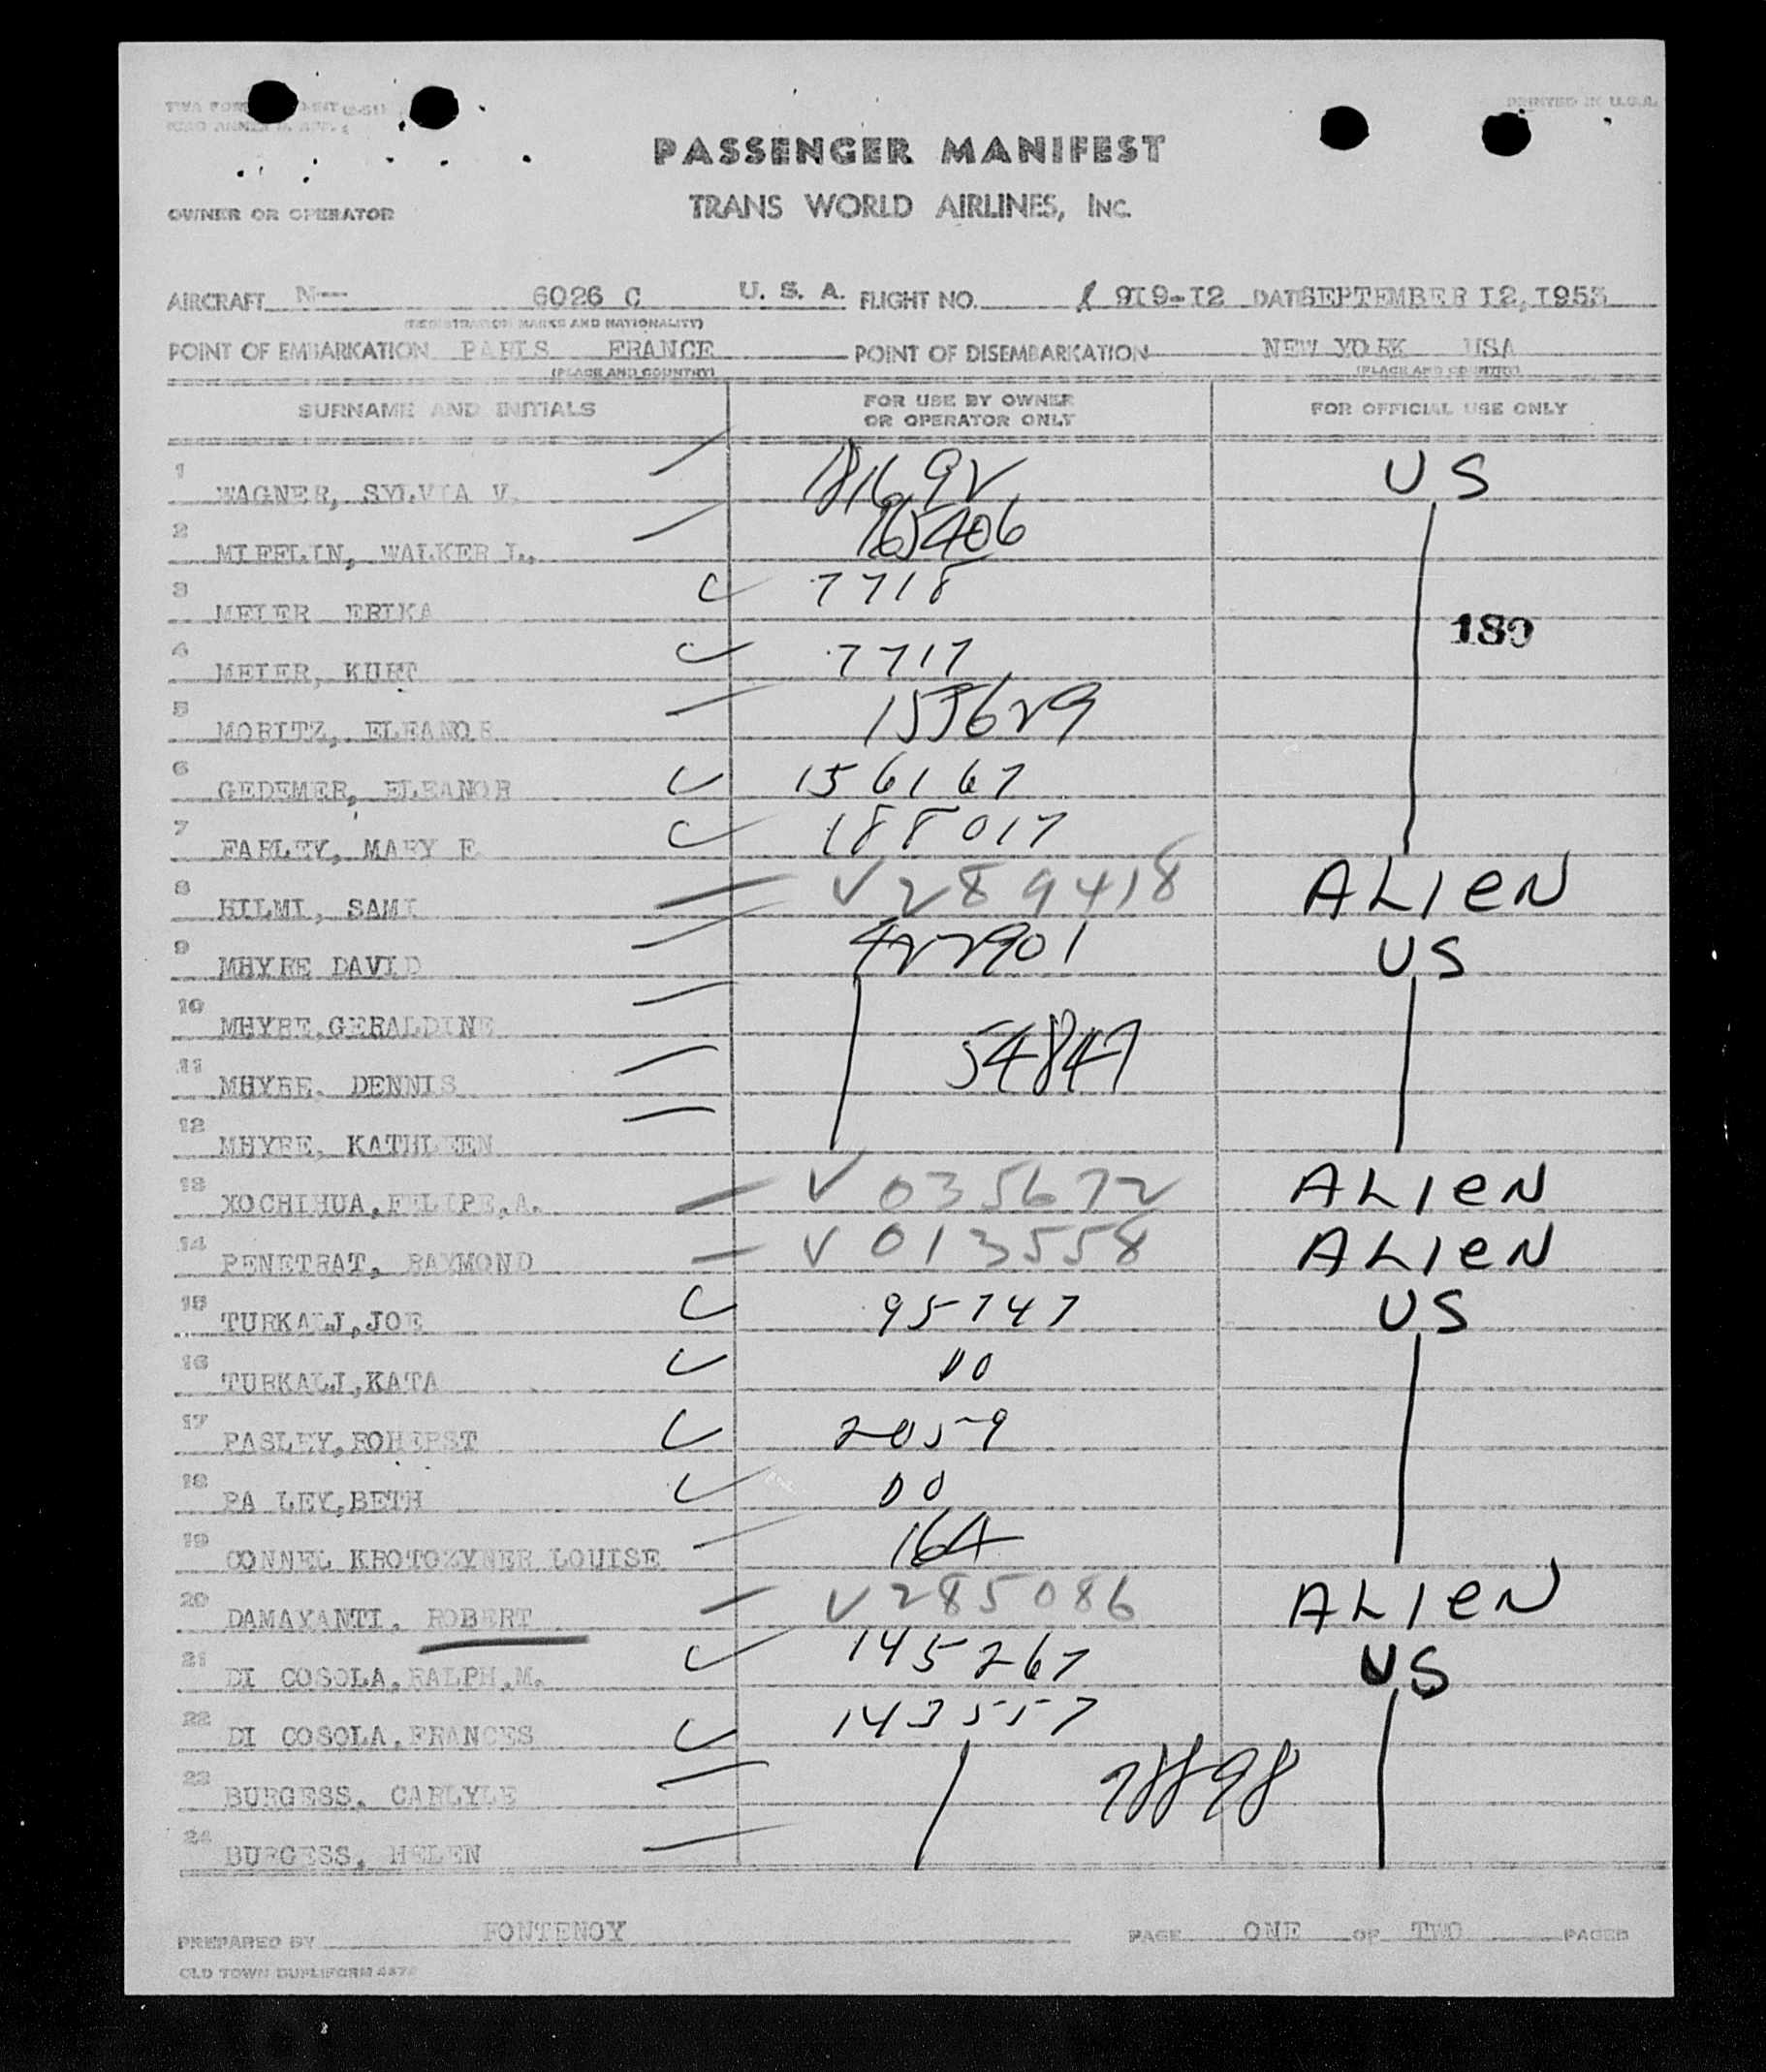 PRINTED IN U.S.A.
PASSENGER MANIFEST
TRANS WORLD AIRLINES, INC.
OWNER OR OPERATOR
AIRCRAFT N-- 6026 C U. S. A. FLIGHT NO. 919-12 DATE SEPTEMBER 12, 1953
(REGISTRATION MARKS AND NATIONALITY)
POINT OF EMBARKATION PARIS FRANCE POINT OF DISEMBARKATION NEW YORK USA
(PLACE AND COUNTRY) (PLACE AND COUNTRY)
SURNAME AND INITIALS FOR USE BY OWNER OR OPERATOR ONLY FOR OFFICIAL USE ONLY
1 WAGNER, SYLVIA V. 181692 US
2 MIFFLIN, WALKER L., 165406
3 MEIER ERIKA 7718
180
4 MEIER, KURT 7717
5 MORITZ, ELEANOR 155629
6 GEDEMER, ELEANOR 156167
7 FARLEY, MARY E 188017
8 HILMI, SAMI V289418 ALIEN
9 MHYRE DAVID 422901 US
10 MHYRE, GERALDINE
54847
11 MHYRE, DENNIS
12 MHYRE, KATHLEEN
13 XOCHIHUA, FELIPE, A. V035672 ALIEN
14 PENETRAT, RAYMOND V013558 ALIEN
15 TURKALJ, JOE 95747 US
16 TURKALJ, KATA DO
17 PASLEY, 2059
18 PA LEY, BETH DO
19 CONNEL KROTOZYNER LOUISE 164
20 DAMAYANTI, ROBERT V285086 ALIEN
21 DI COSOLA, RALPH, M. 145267 US
22 DI COSOLA, FRANCES 143557
23 BURGESS, CARLYLE 78898
24 BURGESS, HELEN
PREPARED BY FONTENOY PAGE ONE OF TWO PAGES
OLD TOWN DUPLIFORM